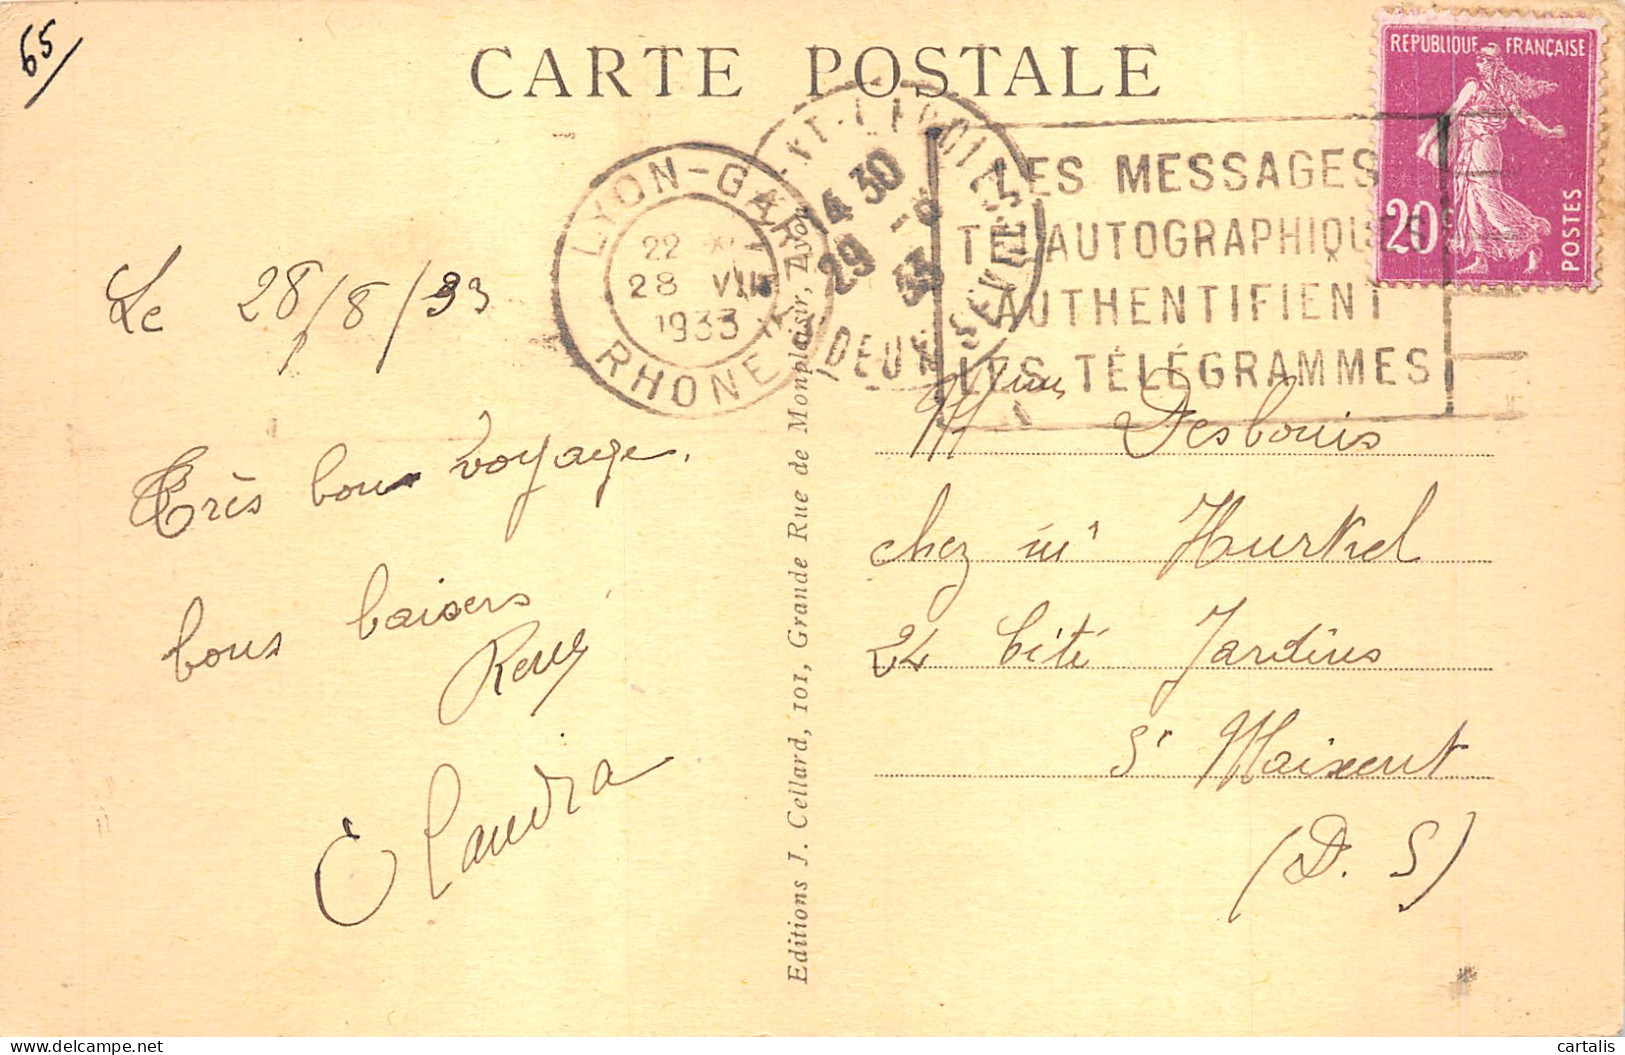 65
CARTE POSTALE
REPUBLIQUE FRANÇAISE
20c
POSTES
LYON-GARE
22
28 VIII
1933
RHONE
14 30
29 - 8
33
DEUX SEVRES
LES MESSAGES
TELAUTOGRAPHIQUES
AUTHENTIFIENT
LES TÉLÉGRAMMES
Le 28/8/33
Très bon voyage.
bons baisers
Claudia
Editions J. Cellard, 101, Grande Rue de Monplaisir, Lyon
Mme Desbouis
chez Mr
24 Cité Jardins
St Maixent
(D. S)
cartalis
delcampe.net